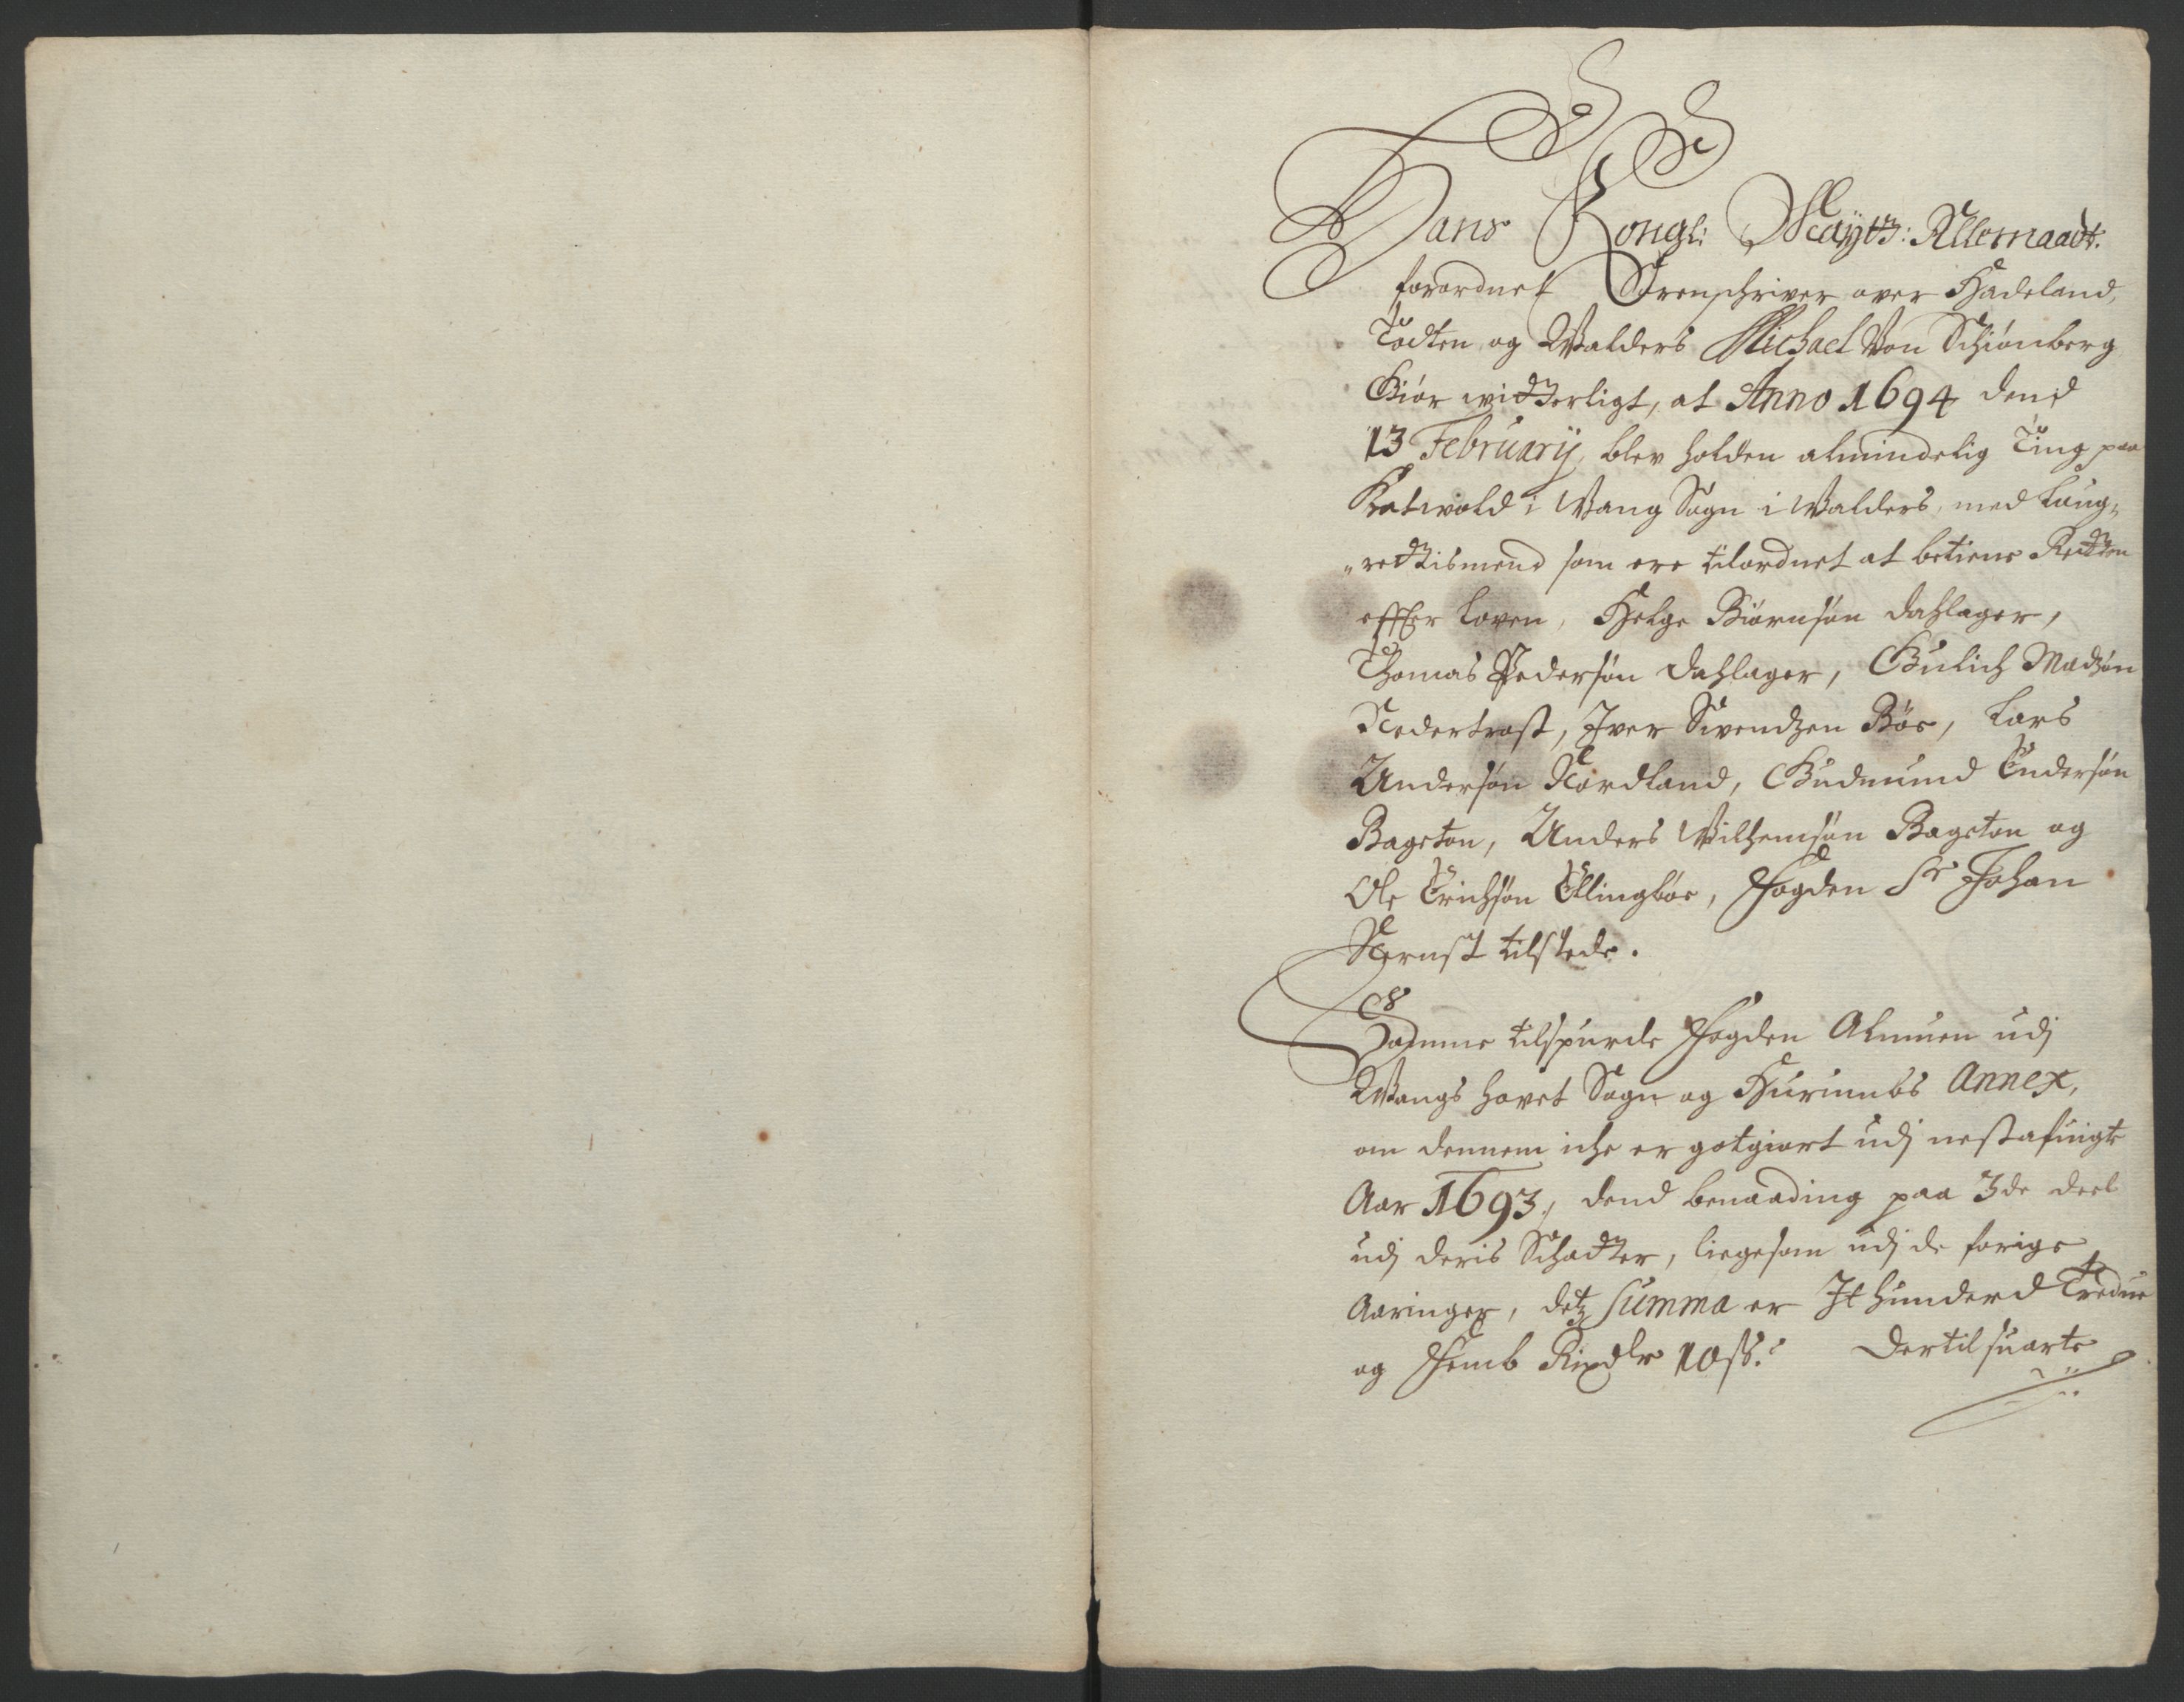 Hans Kongl: Maytz: Allernaadt:
forordnet Sorenschriver over Hadeland,
Todten og Walders Michael Von Schiønberg
Giør witterligt, at Anno 1694 dend
13 February, blev holden almindelig Ting paa
Qvatwold i Wang Sogn i Walders, med Laug„
„rettismend som ere tilordnet at betiene Retten
effter Loven, Helge Biørnsøn Dahlager,
Thomas Pedersøn Dahlager, Gulich Madsøn
Nedertrast, Iver Svendzen Bøe, Lars
Andersøn Nordland, Gudmund Endersøn
Bagston, Anders Wilhemsøn Bagston og
Ole Erichsøn Ellingbøe, Fogden Sr Johan
Nernst tilstede.
Samme tilspurde Fogden Almuen udj
Wangs Hovet Sogn og Hurumbs Annex,
om dennem iche er gotgiort udj nestafuigte
Aar 1693, dend benaading paa 3de deel
udj deris Schatter, liigesom udj de forige
Aaringer, detz summa er It hunderd Tredue
og Femb Rixdlr 10 ss.? Dertil suarte